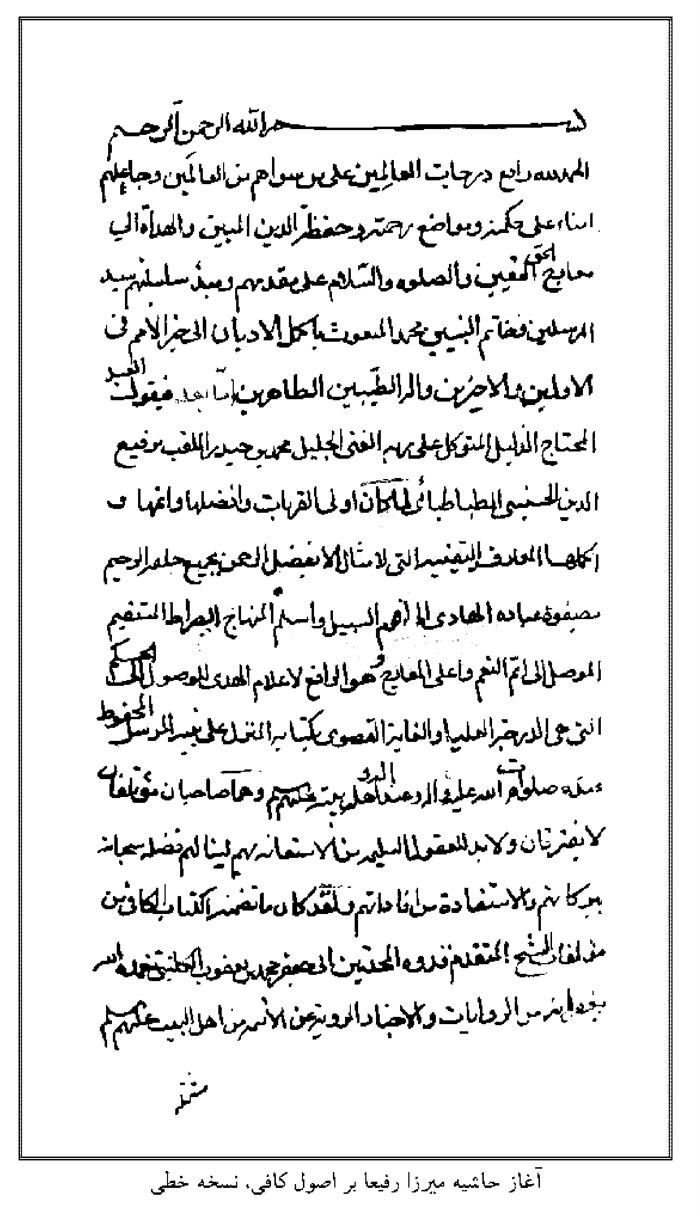 بسم الله الرحمن الرحيم
الحمد لله رافع درجات العالِمين على من سواهم من العالَمين وجاعلهم
امناء على حكمته ومواضع رحمته وحفظة الدين المبين والهداة الى
معارج الحق اليقين والصلوة والسلام على مقدمهم ومبدأ سلسلتهم سيد
المرسلين وخاتم النبيين محمد المبعوث باكمل الاديان الى خير الامم فى
الاولين والاخرين واله الطيبين الطاهرين اما بعد فيقول العبد
المحتاج الذليل المتوكل على ربه الغنى الجليل محمد بن حيدر الملقب برفيع
الدين الحسينى الطباطبائى لما كان اولى القربات وافضلها واتمها و
اكملها المعارف اليقينية التى لا تنال الا بفضل الرحمن بجميع خلقه الرحيم
بصفوة عباده الهادى الى اهم السبيل واسلم المنهاج الصراط المستقيم
الموصل الى اتم النعم واعلى المعارج وهو الرافع لاعلام الهدى للوصول الى
التى هى الدرجة العليا والغاية القصوى بكتابه المنزل على نبيه المرسل المحفوظ
صلوات الله عليه واله وعند اهل بيته عليهم وهما صاحبان مؤتلفان
لا يفترقان ولابد للعقول السليمة من الاستعانة بهم لينالهم فضله سبحانه
ببركاتهم والاستفادة من افاداتهم ولقد كان ما تضمنه الكتاب الكافى من
مؤلفات الشيخ المتقدم قدوة المحدثين ابى جعفر محمد بن يعقوب الكلينى تغمده الله
بغفرانه من الروايات والاخبار المروية عن الائمة من اهل البيت عليهم
آغاز حاشیه میرزا رفیعا بر اصول کافی، نسخه خطی